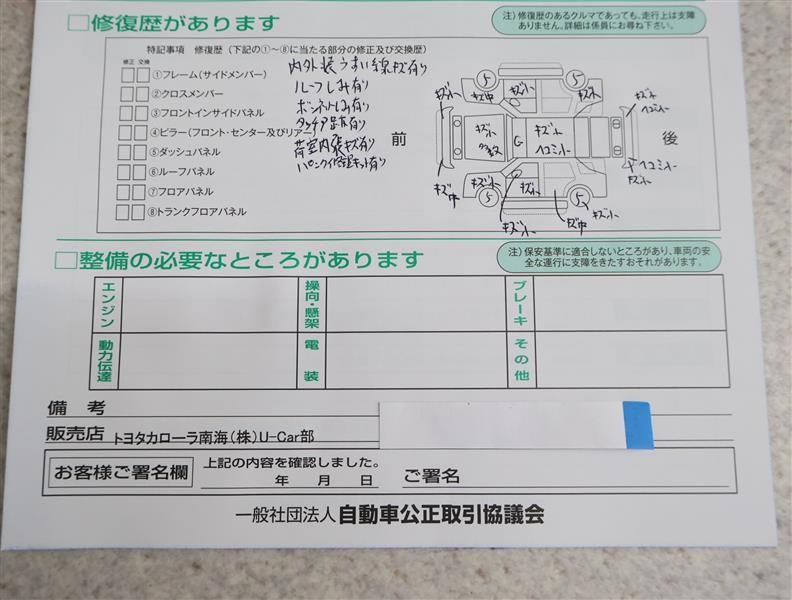 □修復歴があります
注）修復歴のあるクルマであっても、走行上は支障
ありません。詳細は係員にお尋ね下さい。
特記事項　修復歴（下記の①～⑧に当たる部分の修正及び交換歴）
修正 交換
①フレーム（サイドメンバー）
②クロスメンバー
③フロントインサイドパネル
④ピラー（フロント・センター及びリアー）
⑤ダッシュパネル
⑥ルーフパネル
⑦フロアパネル
⑧トランクフロアパネル
内外装うすい線キズ有り
ルーフしみ有り
ボンネットしみ有り
タッチアップ有り
荷室内張キズ有り
前
後
キズ小
キズ中
5
キズ小
5
キズ小
キズ小
ヘコミ小
キズ小
多数
G
キズ小
ヘコミ小
キズ中
キズ小
5
キズ小
5
キズ小
キズ中
キズ小
ヘコミ小
キズ小
□整備の必要なところがあります
注）保安基準に適合しないところがあり、車両の安
全な運行に支障をきたすおそれがあります。
エンジン
操向・懸架
ブレーキ
動力伝達
電装
その他
備考
販売店 トヨタカローラ南海（株）U-Car部
お客様ご署名欄
上記の内容を確認しました。
年　月　日
ご署名
一般社団法人 自動車公正取引協議会